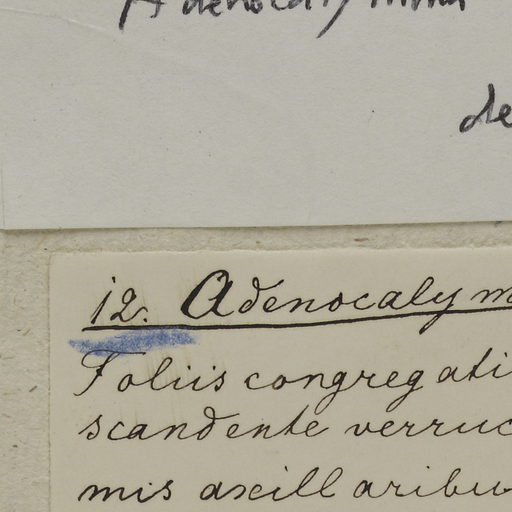 Adenocalymma
de
12. Adenocalym
Foliis congregati
scandente verruc
mis axillaribu